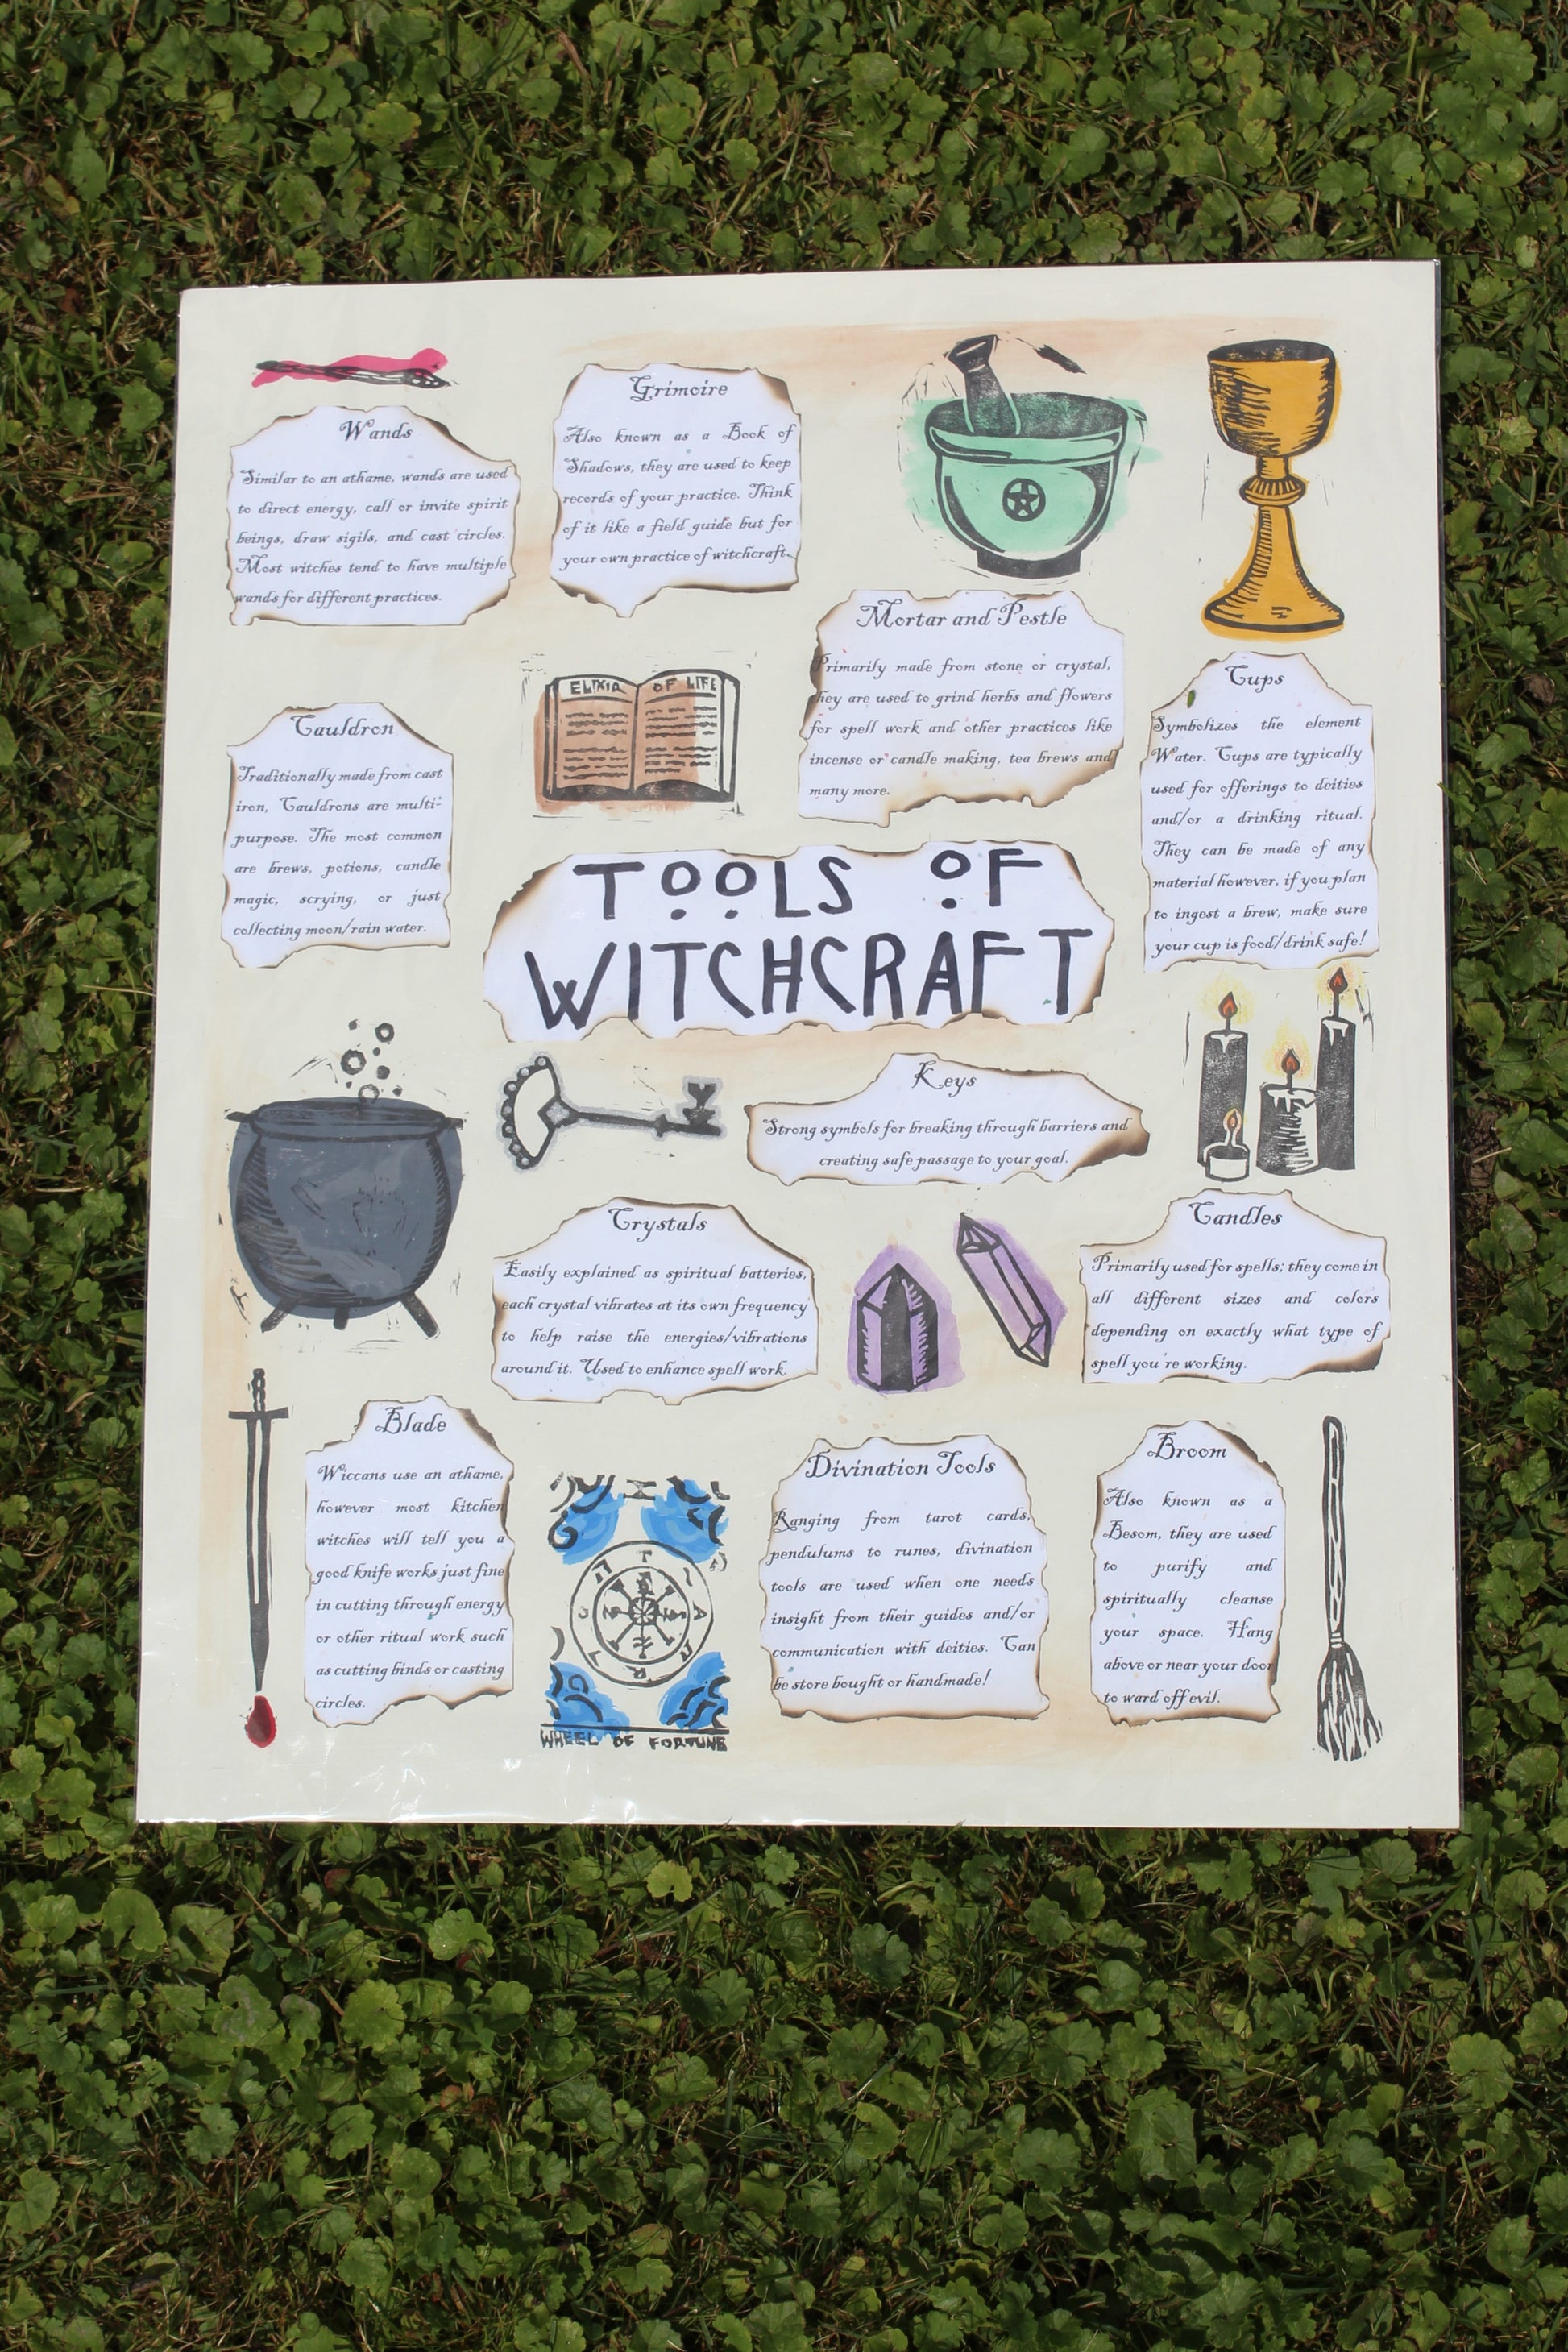 Wands
Similar to an athame, wands are used
to direct energy, call or invite spirit
beings, draw sigils, and cast circles.
Most witches tend to have multiple
wands for different practices.
Grimoire
Also known as a Book of
Shadows, they are used to keep
records of your practice. Think
of it like a field guide but for
your own practice of witchcraft.
ELIXIR OF LIFE
Mortar and Pestle
Primarily made from stone or crystal,
they are used to grind herbs and flowers
for spell work and other practices like
incense or candle making, tea brews and
many more.
Cups
Symbolizes the element
Water. Cups are typically
used for offerings to deities
and/or a drinking ritual.
They can be made of any
material however, if you plan
to ingest a brew, make sure
your cup is food/drink safe!
Cauldron
Traditionally made from cast
iron, Cauldrons are multi-
purpose. The most common
are brews, potions, candle
magic, scrying, or just
collecting moon/rain water.
TOOLS OF
WITCHCRAFT
Keys
Strong symbols for breaking through barriers and
creating safe passage to your goal.
Crystals
Easily explained as spiritual batteries,
each crystal vibrates at its own frequency
to help raise the energies/vibrations
around it. Used to enhance spell work.
Candles
Primarily used for spells; they come in
all different sizes and colors
depending on exactly what type of
spell you're working.
Blade
Wiccans use an athame,
however most kitchen
witches will tell you a
good knife works just fine
in cutting through energy
or other ritual work such
as cutting binds or casting
circles.
WHEEL OF FORTUNE
Divination Tools
Ranging from tarot cards,
pendulums to runes, divination
tools are used when one needs
insight from their guides and/or
communication with deities. Can
be store bought or handmade!
Broom
Also known as a
Besom, they are used
to purify and
spiritually cleanse
your space. Hang
above or near your door
to ward off evil.